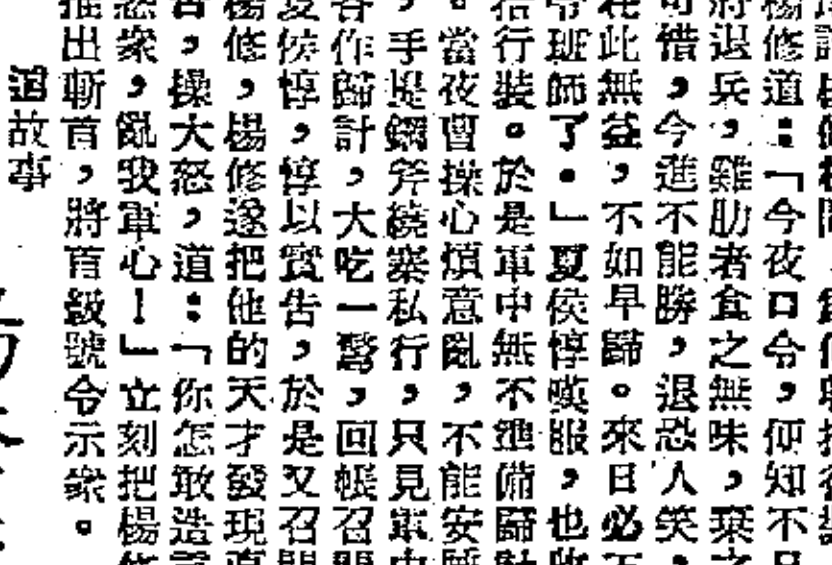 楊修道：「今夜口令，便知不
將退兵，雞肋者食之無味，棄之
可惜，今進不能勝，退恐人笑，
在此無益，不如早歸。來日必
令班師了。」夏侯惇嘆服，也收
拾行裝。於是軍中無不準備歸計
。當夜曹操心煩意亂，不能安睡
，手提鋼斧繞寨私行，只見軍中
各作歸計，大吃一驚，回帳召
夏侯惇，惇以實告，於是又召
楊修，楊修遂把他的天才發現
，操大怒，道：「你怎敢造謠
惑眾，亂我軍心！」立刻把楊修
推出斬首，將首級號令示眾。
故事